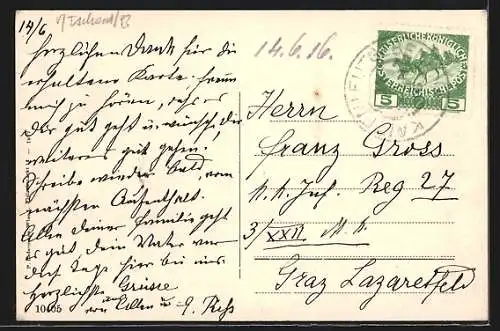 14/6
14.6.16.
herzlichen Dank für die
erhaltene Karte. freue
mich zu hören, dass es
Dir gut geht u. wünsche, dir
weiteres gut gehen.
Schreibe wieder bald, vom
nächsten Aufenthalt.
Allen deiner Familie geht
es gut dein Vater war
Tage hier bei uns
herzlichste Grüsse
von Allen u.
10405
KAISERLICHE KÖNIGLICHE
ÖSTERREICHISCHE POST
5 5
Herrn
Franz Gross
k. k. Inf. Reg 27
3/XXII M. b.
Graz Lazarettfeld